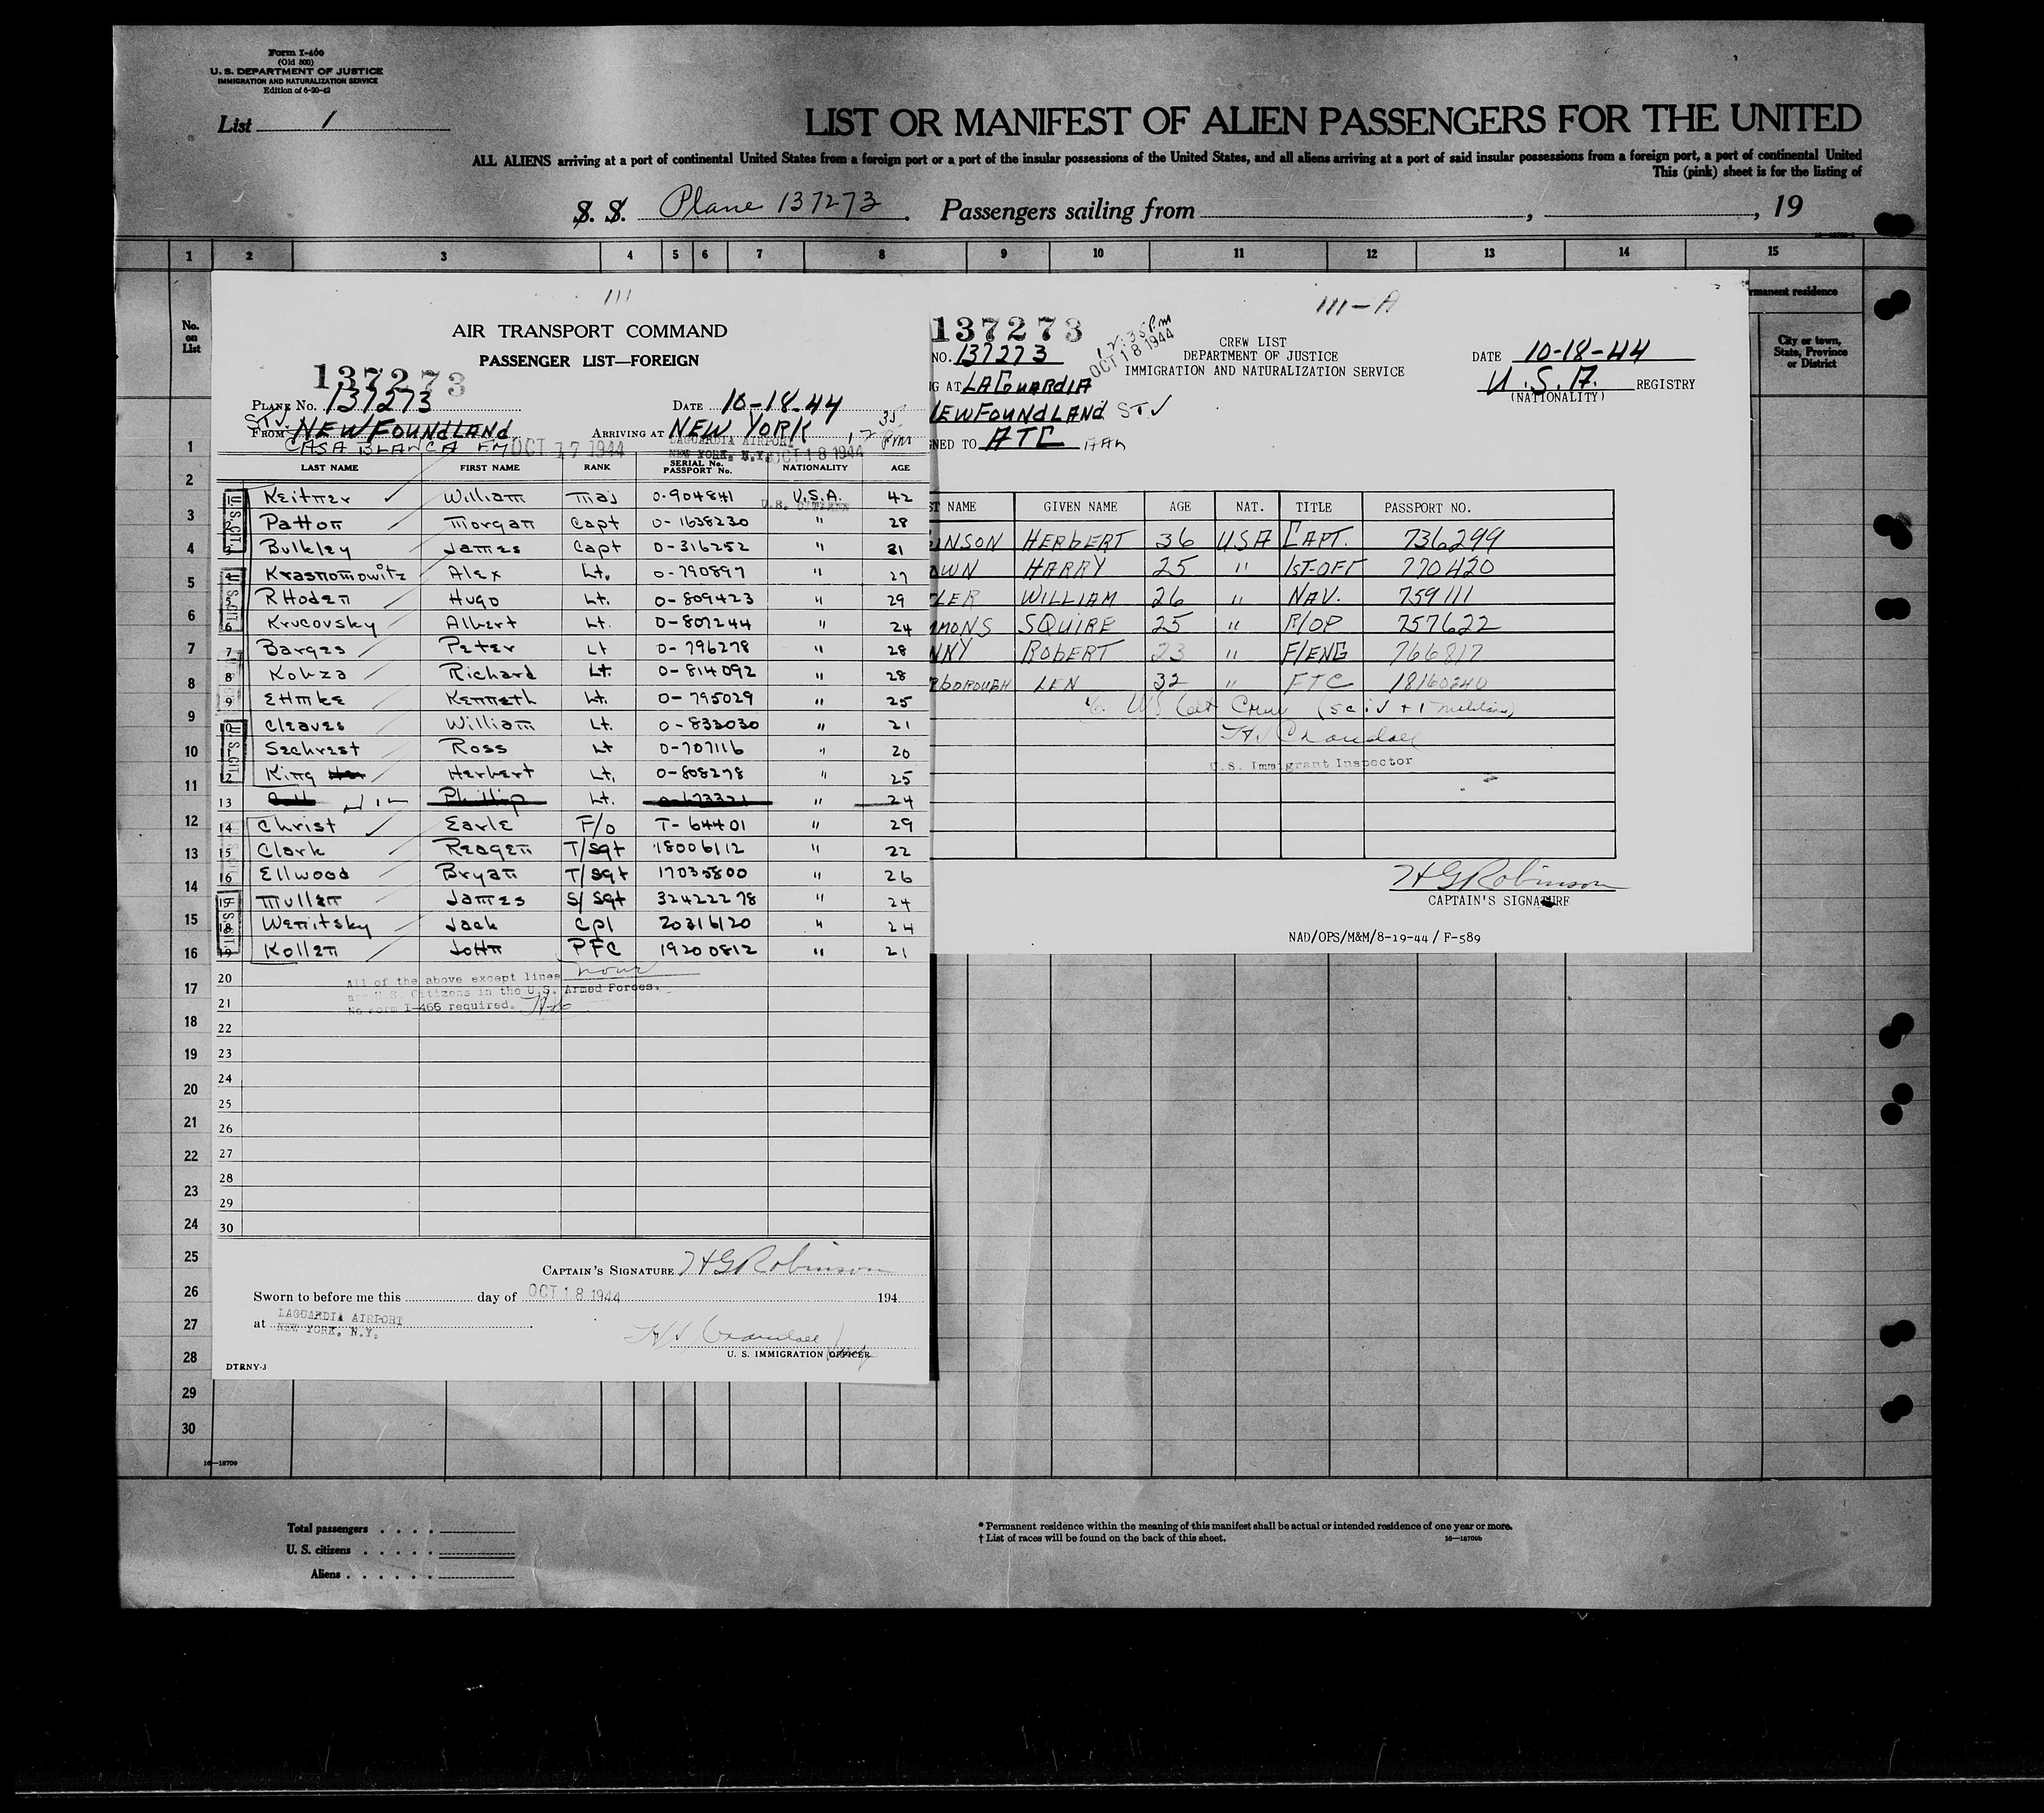 Form I-460
(Old 500)
U. S. DEPARTMENT OF JUSTICE
IMMIGRATION AND NATURALIZATION SERVICE
Edition of 6-20-42
List 1
LIST OR MANIFEST OF ALIEN PASSENGERS FOR THE UNITED
ALL ALIENS arriving at a port of continental United States from a foreign port or a port of the insular possessions of the United States, and all aliens arriving at a port of said insular possessions from a foreign port, a port of continental United
This (pink) sheet is for the listing of
S. S. Plane 137273. Passengers sailing from , , 19
1 2 3 4 5 6 7 8 9 10 11 12 13 14 15
No. on List
rmanent residence
City or town, State, Province or District
111
AIR TRANSPORT COMMAND
PASSENGER LIST—FOREIGN
137273
PLANE NO. 137273 DATE 10-18-44
STV.
FROM NEWFOUNDLAND ARRIVING AT NEW YORK 1 35 PM
CASA BLANCA OCT 17 1944 LAGUARDIA AIRPORT NEW YORK, N.Y. OCT 18 1944
LAST NAME FIRST NAME RANK SERIAL No. PASSPORT No. NATIONALITY AGE
1 Keitner William Maj 0-904841 U.S.A. 42
U.S. CITIZEN
2 Patton Morgan Capt 0-1638230 " 28
3 Bulkley James Capt 0-316252 " 31
4 Krasnomowitz Alex Lt. 0-790897 " 27
5 RHoden Hugo Lt. 0-809423 " 29
6 Krucovsky Albert Lt. 0-807244 " 24
7 Barges Peter Lt 0-796278 " 28
8 Kohza Richard Lt. 0-814092 " 28
9 EHmke Kenneth Lt. 0-795029 " 25
10 Cleaves William Lt. 0-833030 " 21
11 Sechrest Ross Lt 0-707116 " 20
12 King Herbert Lt. 0-808278 " 25
13 Phillip Lt. 0-673321 " 24
14 Christ Earle F/O T-64401 " 29
15 Clark Reagen T/Sgt 18006112 " 22
16 Ellwood Bryan T/Sgt 17035800 " 26
17 Mullen James S/Sgt 32422278 " 24
18 Wenitsky Jack Cpl 20316120 " 24
19 Kollen JoHn PFC 19200812 " 21
20
All of the above except lines none
are U.S. Citizens in the U.S. Armed Forces.
No Form I-466 required.
21
22
23
24
25
26
27
28
29
30
CAPTAIN'S SIGNATURE H G Robinson
Sworn to before me this day of OCT 18 1944 194
at LAGUARDIA AIRPORT
NEW YORK, N.Y.
U. S. IMMIGRATION OFFICER
DTRNY-J
111-A
137273
NO. 137273
1:35 PM
OCT 18 1944
CREW LIST
DEPARTMENT OF JUSTICE
IMMIGRATION AND NATURALIZATION SERVICE
DATE 10-18-44
U.S.A. REGISTRY
(NATIONALITY)
NG AT LAGUARDIA
NEWFOUNDLAND STV
NED TO ATC
ST NAME GIVEN NAME AGE NAT. TITLE PASSPORT NO.
INSON HERBERT 36 USA CAPT. 736299
OWN HARRY 25 " 1ST-OFF 770420
LER WILLIAM 26 " NAV. 759111
MMONS SQUIRE 25 " R/OP 757622
NNY ROBERT 23 " F/ENG 766817
RBOROUGH LEN 32 " FTC 18160240
U.S. Immigrant Inspector
H G Robinson
CAPTAIN'S SIGNATURE
NAD/OPS/M&M/8-19-44 / F-589
1
2
3
4
5
6
7
8
9
10
11
12
13
14
15
16
17
18
19
20
21
22
23
24
25
26
27
28
29
30
16—18709
Total passengers . . . .
U. S. citizens . . . . .
Aliens . . . . . .
* Permanent residence within the meaning of this manifest shall be actual or intended residence of one year or more.
† List of races will be found on the back of this sheet.